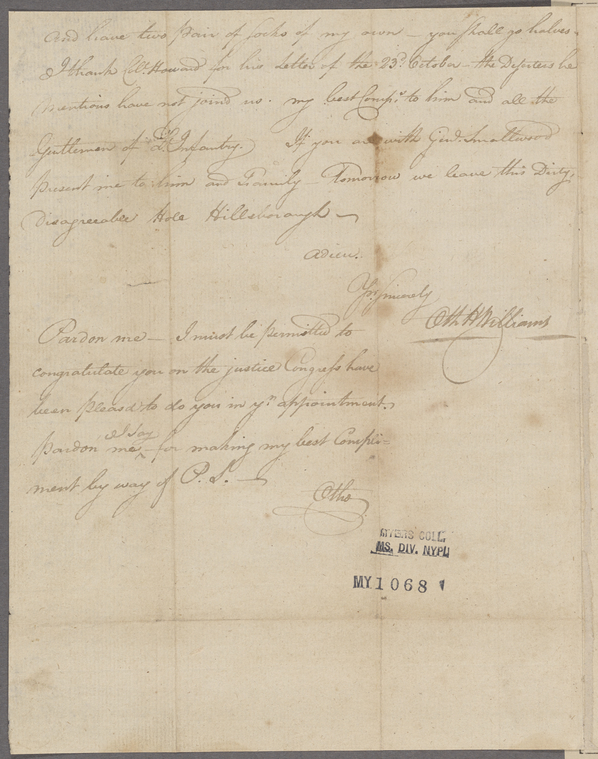 and have two pair of socks of my own – you shall go halves.
I thank Col. Howard for his Letter of the 23d. October – the Deputies he
mentions have not joind us. my best Compts. to him and all the
Gentlemen of Lt. Infantry. If you are with Genl. Smallwood
present me to him and Family – Tomorrow we leave this Dirty,
disagreeable Hole Hillsborough –
adieu.
Yrs. Sincerely
Oth H Williams
Pardon me – I must be permitted to
congratulate you on the justice Congress have
been pleased to do you in yr. appointment.
I say
pardon me – for making my best Compli=
ment by way of P. S. –
Otho
MYERS COLL.
MS. DIV. NYPL
MY 1068